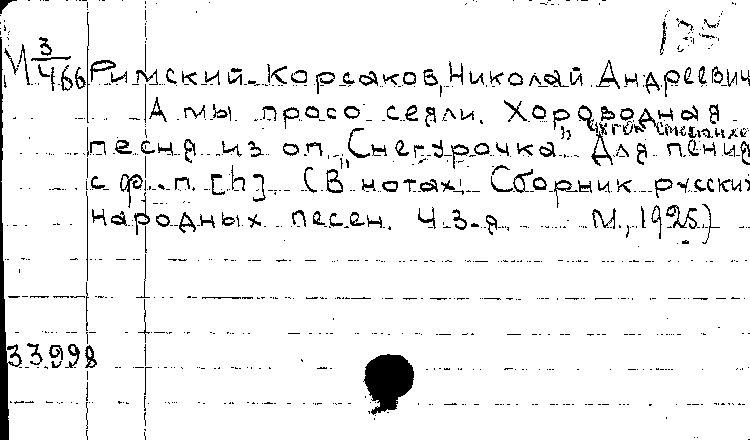 135
М 3/466 Римский-Корсаков, Николай Андреевич
А мы просо сеяли. Хороводная
песня из оп. „Снегурочка" Для пения
с ф.-п. [h]. (В нотах: Сборник русских
народных песен. Ч.3-я. М., 1925)
33998